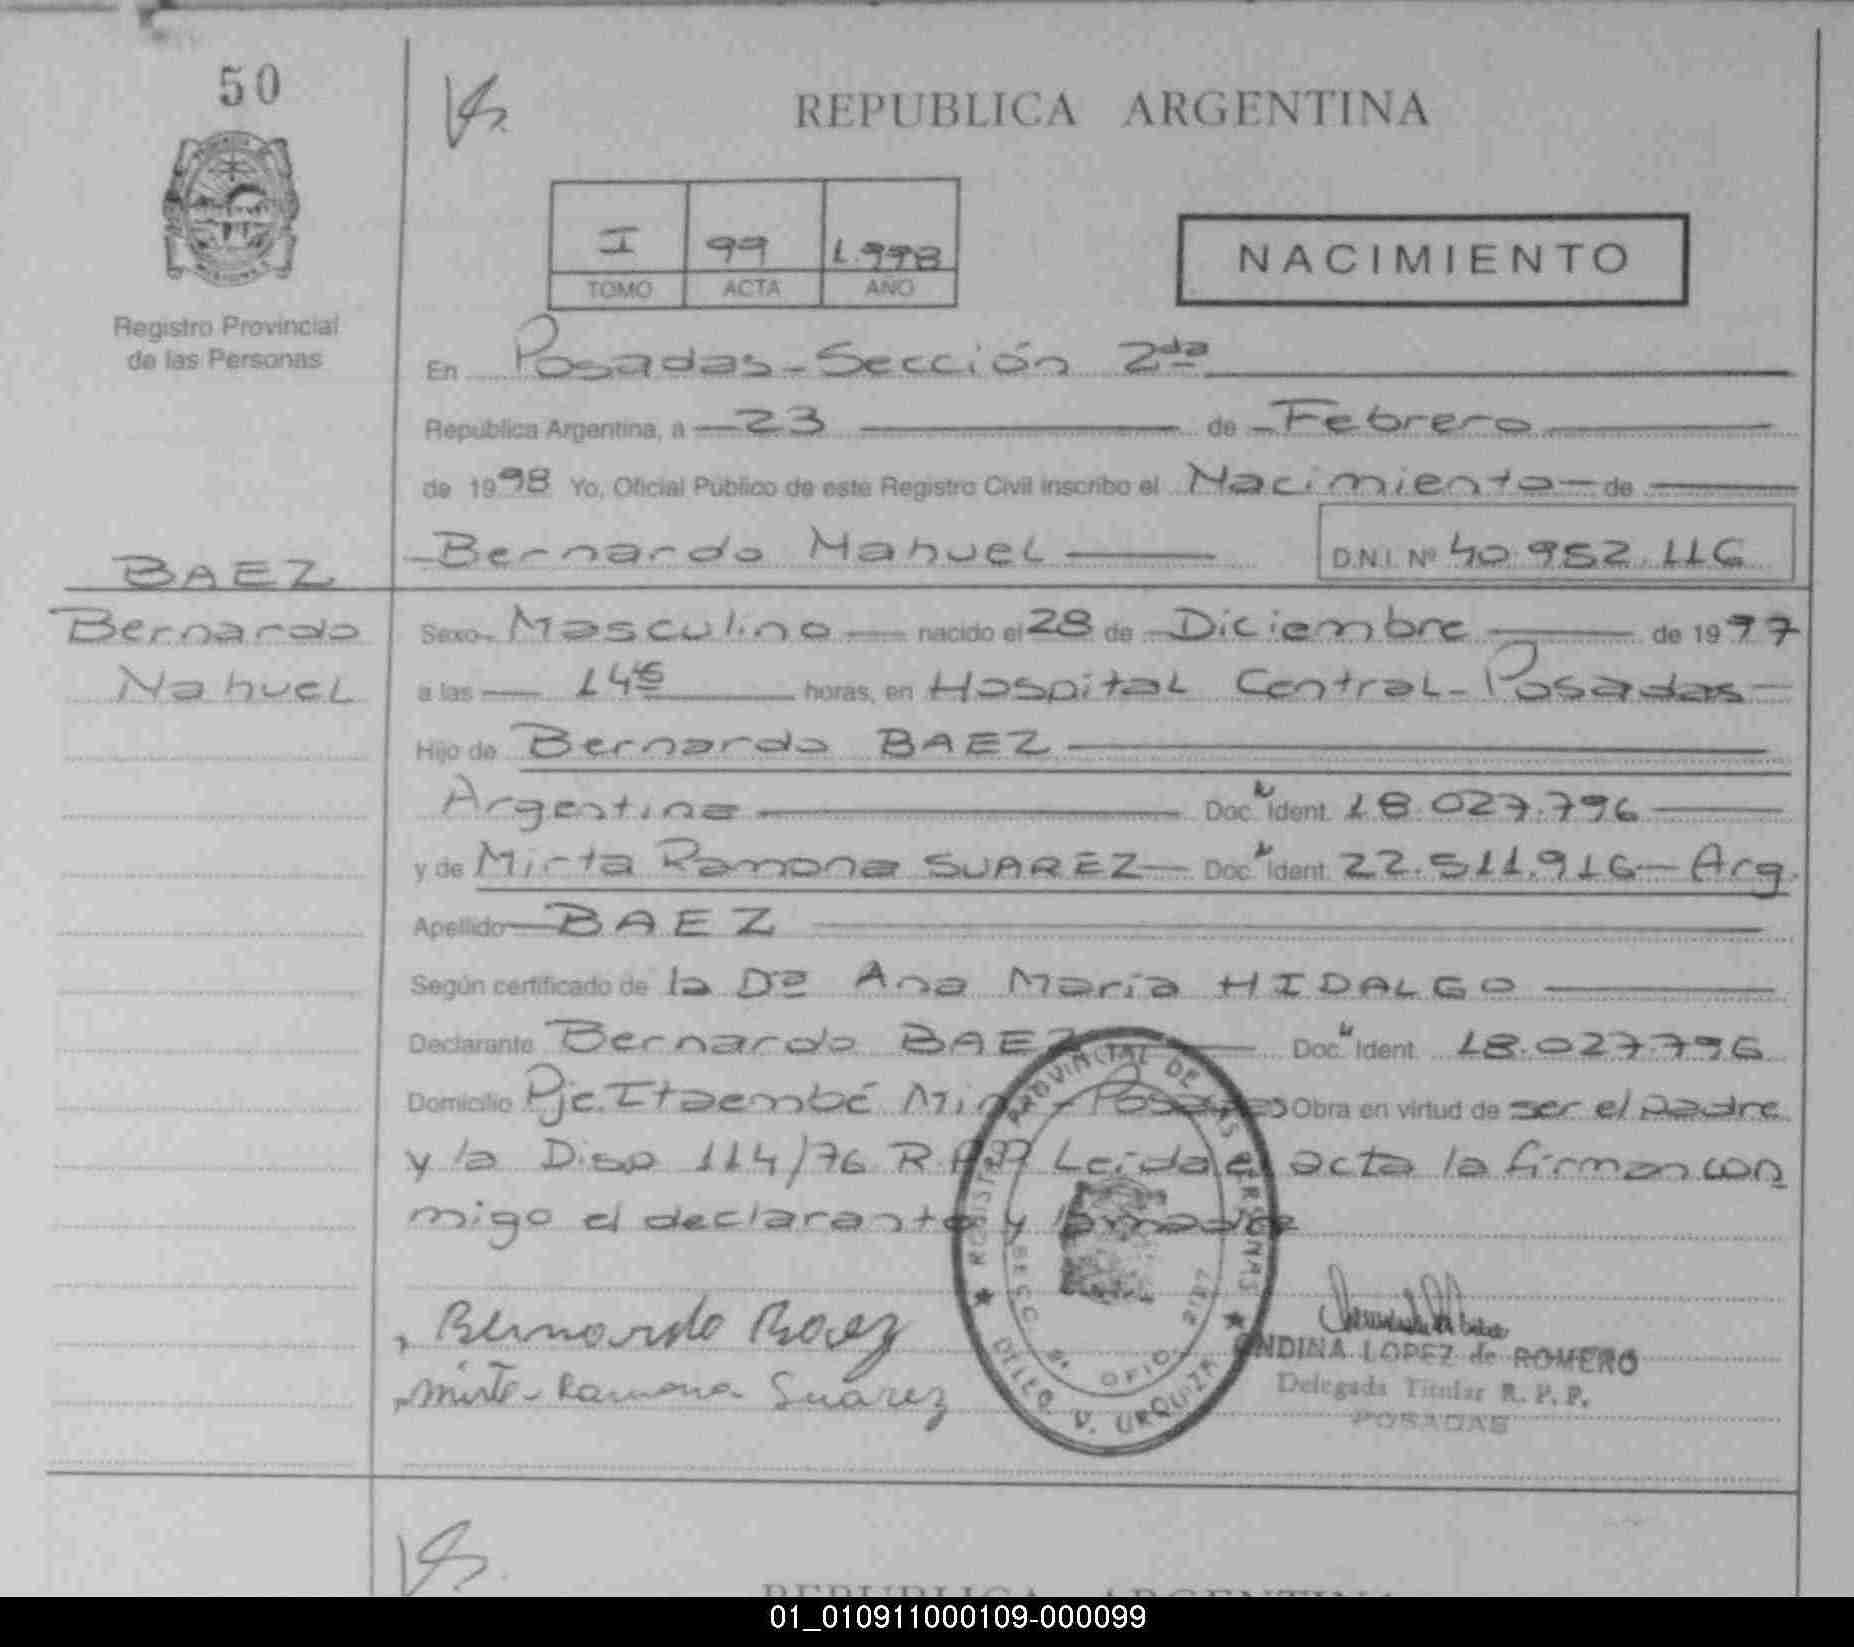 50
REPUBLICA ARGENTINA
I 99 1.998
TOMO ACTA AÑO
NACIMIENTO
Registro Provincial
de las Personas
En Posadas-Sección 2da
Republica Argentina, a 23 de Febrero
de 1998 Yo, Oficial Público de este Registro Civil inscribo el Nacimiento de
Bernardo Nahuel D.N.I. Nº 40.952.116
BAEZ
Bernardo
Nahuel
Sexo Masculino nacido el 28 de Diciembre de 1997
a las horas, en Hospital Central-Posadas
Hijo de Bernardo BAEZ
Argentina Doc. Ident. 18.027.796
y de Mirta Ramona SUAREZ Doc. Ident. 22.511.916 - Arg.
Apellido BAEZ
Según certificado de la Dra Ana María HIDALGO
Declarante Bernardo BAEZ Doc. Ident. 18.027.796
Domicilio Pje. Itaembé Mini - Posadas Obra en virtud de ser el padre
y la Disp 114/76 R.P.P. Leída el acta la firman con
migo el declarante y la madre
Bernardo Baez
Mirta Ramona Suárez
REGISTRO PROVINCIAL DE LAS PERSONAS
DELEG. V. URQUIZA
ONDINA LOPEZ de ROMERO
Delegada Titular R. P. P.
POSADAS
REPUBLICA ARGENTINA
01_010911000109-000099